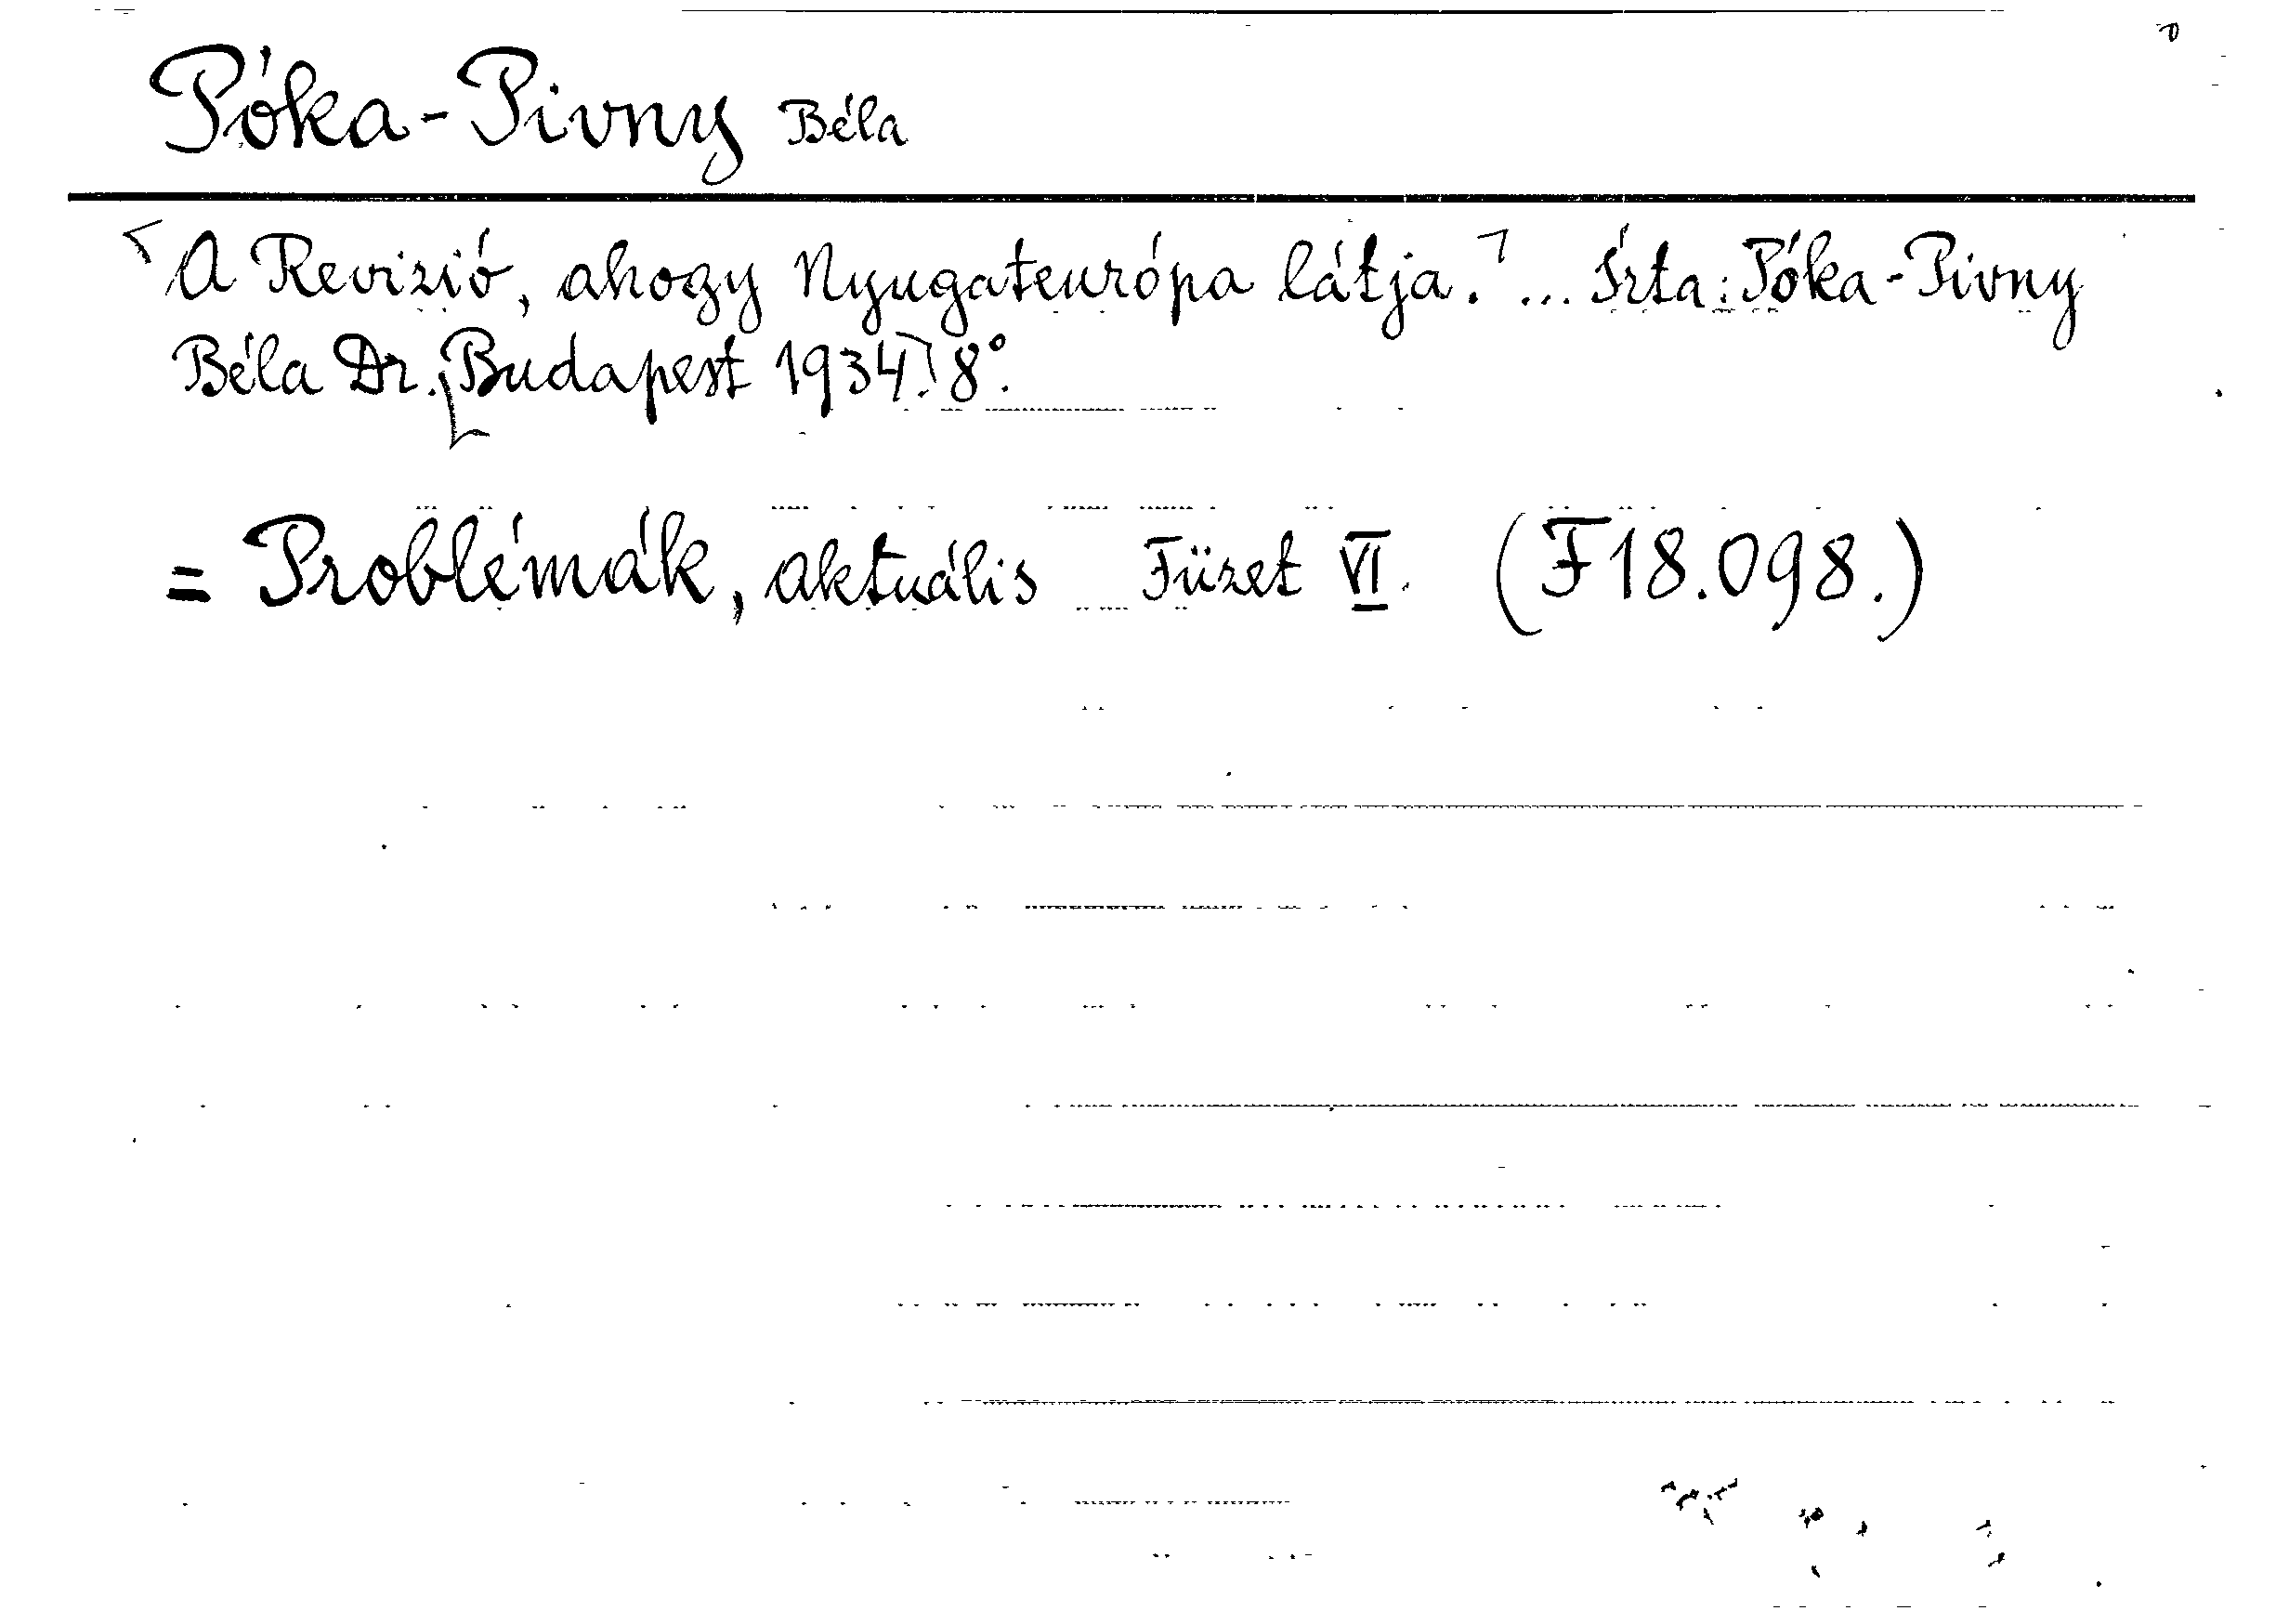 Póka-Pivny Béla
A Revizió, ahogy Nyugateurópa látja. ... Írta: Póka-Pivny
Béla Dr. Budapest 1934. 8°.
= Problémák, aktuális Füzet VI. (F18.098.)